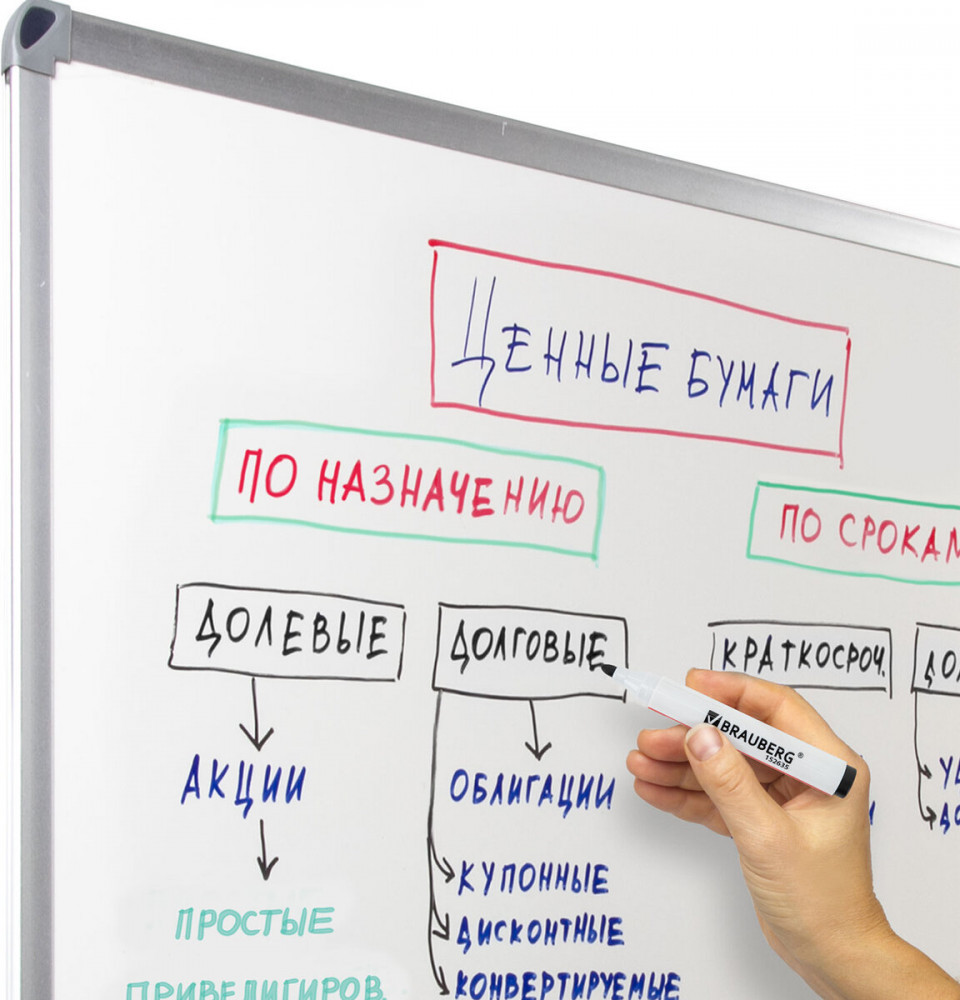 ЦЕННЫЕ БУМАГИ
ПО НАЗНАЧЕНИЮ
ПО СРОКАМ
ДОЛЕВЫЕ
ДОЛГОВЫЕ
КРАТКОСРОЧ.
АКЦИИ
ОБЛИГАЦИИ
BRAUBERG®
152635
КУПОННЫЕ
ДИСКОНТНЫЕ
КОНВЕРТИРУЕМЫЕ
ПРОСТЫЕ
ПРИВЕЛИГИРОВ.